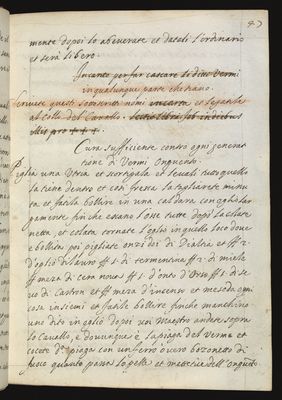 mente dopoi lo abeverate et datoli l'ordinario
et sera libero.
Incanto per far cascare li ditti Vermi
in qualunque parte che siano.
Scrivete questi sottoscritti nomi in carta et legateli
al collo del Cavallo.
Cura sufficiente contro ogni genera
tione di Vermi Onguento.
Piglia una Utria et scortigala et levali tutto quello
la tiene dentro et con frezza la tagliarete minu
ta et fatila bollire in una caldara con oglio lar
gamente fin che essano l'osse tutte dopoi la colate
netta, et colata tornate l'oglio in quello loco dove
e bollita poi pigliate onzi doi di Dialtea et
d'oglio di lauro di termentina di miele
meza di cera nova d'onto d'Orso di se
vo di Castron et meza d'incenso et mesida ogni
cosa insiemi et fatile bollere finche manchino
uno dito in oglio dopoi voi Maestro andate sopra
lo Cavallo, e dovunque è la piaga del Verme et
cocete piaga con un ferro overo bozonetto di
fuoco quanto passa la pelle et mettetice dell'onguento